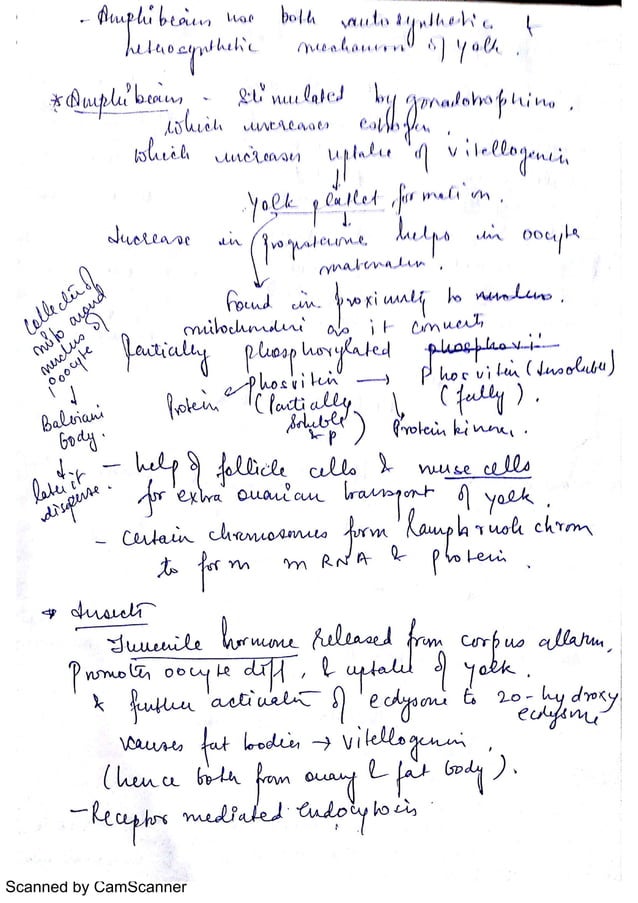 - Amphibeains use both autosynthetic &
heterosynthetic mechanism of yolk.
* Amphibeains - Stimulated by gonadotrophins.
which increases estrogen.
which increases uptake of vitellogenin
Yolk platlet formation.
Increase in progesterone helps in oocyte
maturation.
found in proximity to nucleus.
mitochondri as it converts
Partially phosphorylated phosphovi
Protein phosvitin → Phosvitin (Insoluble)
(Partially soluble & p) (fully).
Protein kinase.
collectn of
mito around
nucleus of
oocyte
↓
Balbiani
body.
↓
later it
disperse.
- help of follicle cells & nurse cells
for extra ovarian transport of yolk.
- Certain chromosomes form Lampbrush chrom
to form mRNA & protein.
→ Insect
Juvenile hormone released from corpus allatum,
Promotes oocyte diff, & uptake of yolk.
& further activatn of ecdysone to 20-hydroxy
ecdysone
causes fat bodies → vitellogenin
(hence both from ovary & fat body).
- Receptor mediated endocytosis
Scanned by CamScanner